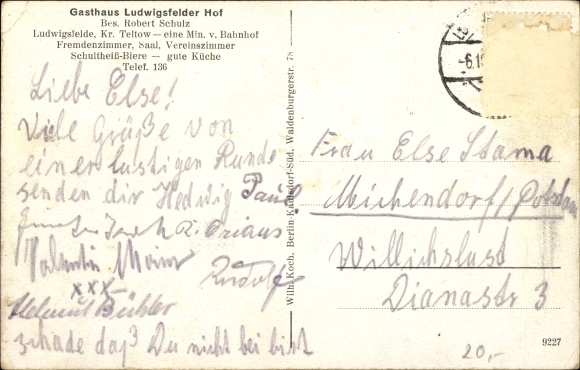 Gasthaus Ludwigsfelder Hof
Bes. Robert Schulz
Ludwigsfelde, Kr. Teltow — eine Min. v. Bahnhof
Fremdenzimmer, Saal, Vereinszimmer
Schultheiß-Biere — gute Küche
Telef. 136
Liebe Else!
Viele Grüße von
einer lustigen Runde
senden dir Hedwig Paul
Valentin
Rudolf
xxx
Helmut Bühler
schade daß Du nicht bei bist
Wilh. Koch, Berlin-Kaulsdorf-Süd, Waldenburgerstr. 78
-6.
Frau Else Stama
Michendorf/Potsdam
Willichslust
Dianastr 3
9227
20,-